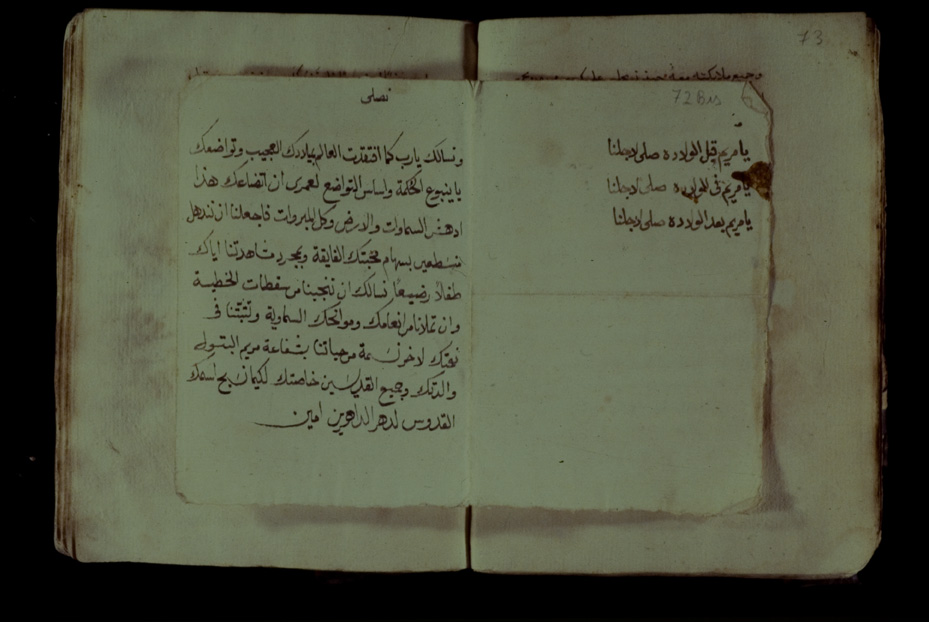 73
72 Bis
يا مريم قبل الولاده صلى لاجلنا
يا مريم فى الولاده صلى لاجلنا
يا مريم بعد الولاده صلى لاجلنا
نصلى
ونسالك يارب كما افتقدت العالم بميلادك العجيب وتواضعك
يا ينبوع الحكمة واساس التواضع لعمرى ان اتضاعك هذا
ادهش السماوات والارض وكل المبروات فاجعلنا ان نندهل
بسهام محبتك الفايقة وبمجرد مشاهدتنا اياك
طفلا رضيعا نسالك ان تنجينا من سقطات الخطية
وان تملانا من انعامك ومواهبك السماوية وتثبتنا فى
لاخر حياتنا بشفاعة مريم البتول
والدتك وجميع القديسين خاصتك لكيما نسبح اسمك
القدوس لدهر الداهرين امين